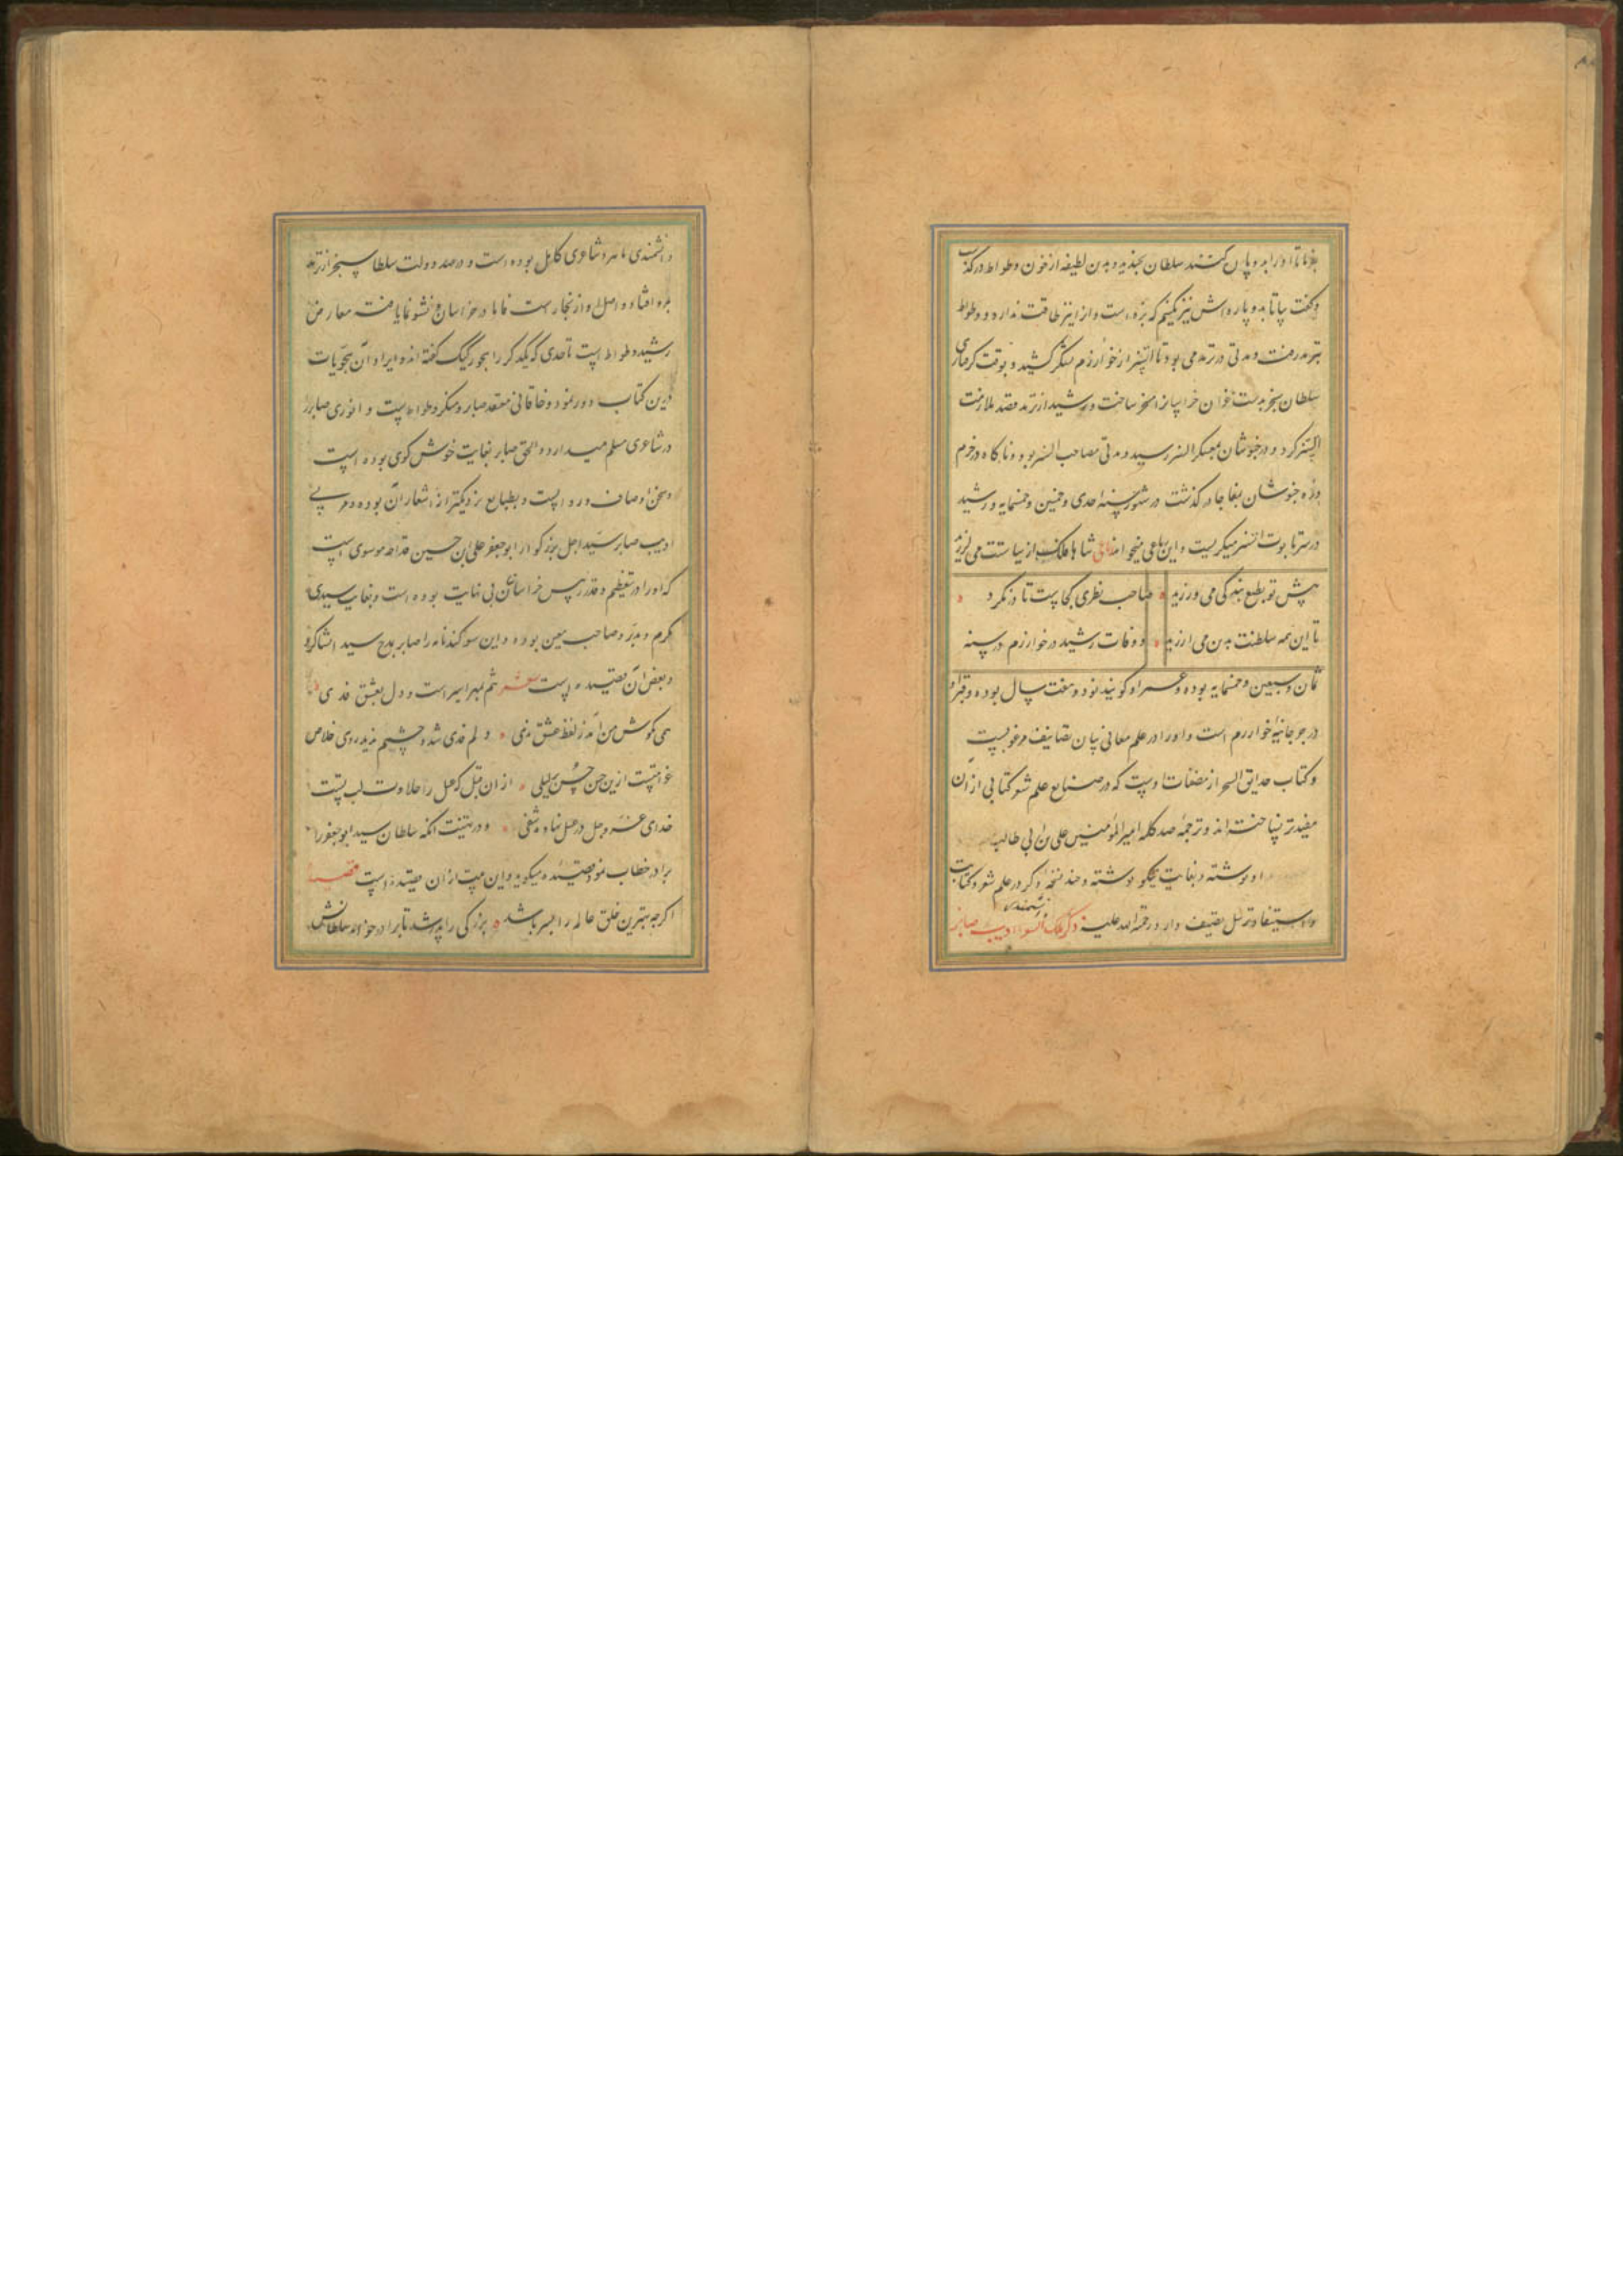 بفرما تا او را بدو پاره کنند سلطان بخندید و بدین لطیفه از خون وطواط درگذشت
و گفت بیا تا بدو پاره اش نیز نکنیم که بزه است و از این نیز طاقت ندارد و وطواط
بترمد رفت و مدتی در ترمد می بود تا اتسز از خوارزم لشکر کشید و بوقت گرفتاری
سلطان سنجر بدست غزان خراسان را مسخر ساخت و رشید از ترمد قصد ملازمت
اتسز کرد و در خبوشان بمعسکر اتسز رسید و مدتی مصاحب اتسز بود و ناگاه در خرم
دره خبوشان بفجا درگذشت در شهور سنه احدی و خمسین و خمسمایه و رشید
در سر تابوت اتسز میگریست و این رباعی میخواند رباعی شاها فلک از سیاستت می لرزید
پیش تو بطبع بندگی می ورزید صاحب نظری کجاست تا در نگرد
تا این همه سلطنت بدین می ارزید و وفات رشید در خوارزم در سنه
ثمان و سبعین و خمسمایه بوده و عمر او گویند نود و هفت سال بوده و قبر او
در جرجانیه خوارزم است و او را در علم معانی بیان تصانیف مرغوبست
و کتاب حدایق السحر از مصنفات اوست که در صنایع علم شعر کتابی از آن
مفیدتر نساخته اند و ترجمه صد کلمه امیر المؤمنین علی بن ابی طالب
او نوشته و بغایت نیکو نوشته و چند نسخه دیگر در علم شعر و کتابت
و استیفا و ترسل تصنیف دارد رحمة الله علیه ذکر ملک الشعرا ادیب صابر
دانشمندی ماهر و شاعری کامل بوده است و در عهد دولت سلطان سنجر از ترمد
بمرو افتاد و اصل او از بخارا است فاما در خراسان نشو نما یافته معارض
رشید وطواط است تا حدی که یکدیگر را هجو رکیک گفته اند و ایراد آن هجویات
درین کتاب دور نمود و خاقانی معتقد صابر و منکر وطواط است و انوری صابر را
در شاعری مسلم میدارد و الحق صابر بغایت خوش گوی بوده است
و سخن او صاف و روانست و بطبایع نزدیکتر از اشعار آن بوده و مربی
ادیب صابر سید اجل بزرگوار ابو جعفر علی بن حسین قدامه موسوی است
که او را در تعظیم و قدر رئیس خراسان بی نهایت بوده است و بغایت سیدی
مکرم و مدبر و صاحب یقین بوده و این سوگند نامه را صابر بمدح سید انشا کرد
و بعض آن قصیده است شعر تنم بمهر اسیر است و دل بعشق فدی
همی بگوش من آمد ز لفظ عشق ندی دلم فدی شد و چشیم ندید روی خلاص
غرامتیست ازین حسن حسن لیلی از آن قبل که عسل را حلاوت لب تست
خدای عز و جل در عسل نهاد شفی و در تهنیت آنکه سلطان سید ابو جعفر را
برادر خطاب نمود قصیده میگوید و این بیت از آن قصیده است قصیده
اگر چه بهترین خلق عالم را پسر باشد بزرگی را پدر شد تا برادر خواند سلطانش